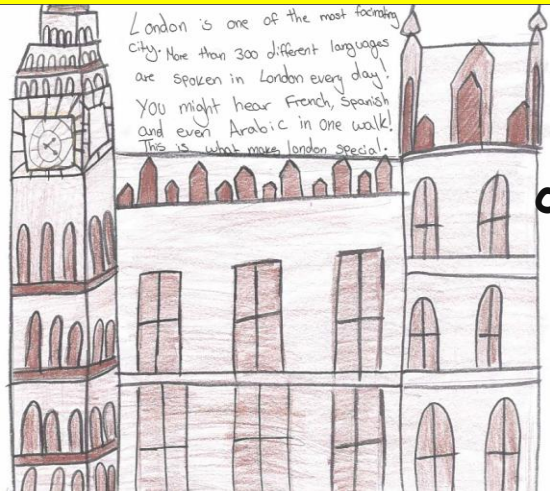 London is one of the most facinating
city. More than 300 different languages
are spoken in London every day!
You might hear French, Spanish
and even Arabic in one walk!
This is what makes london special.